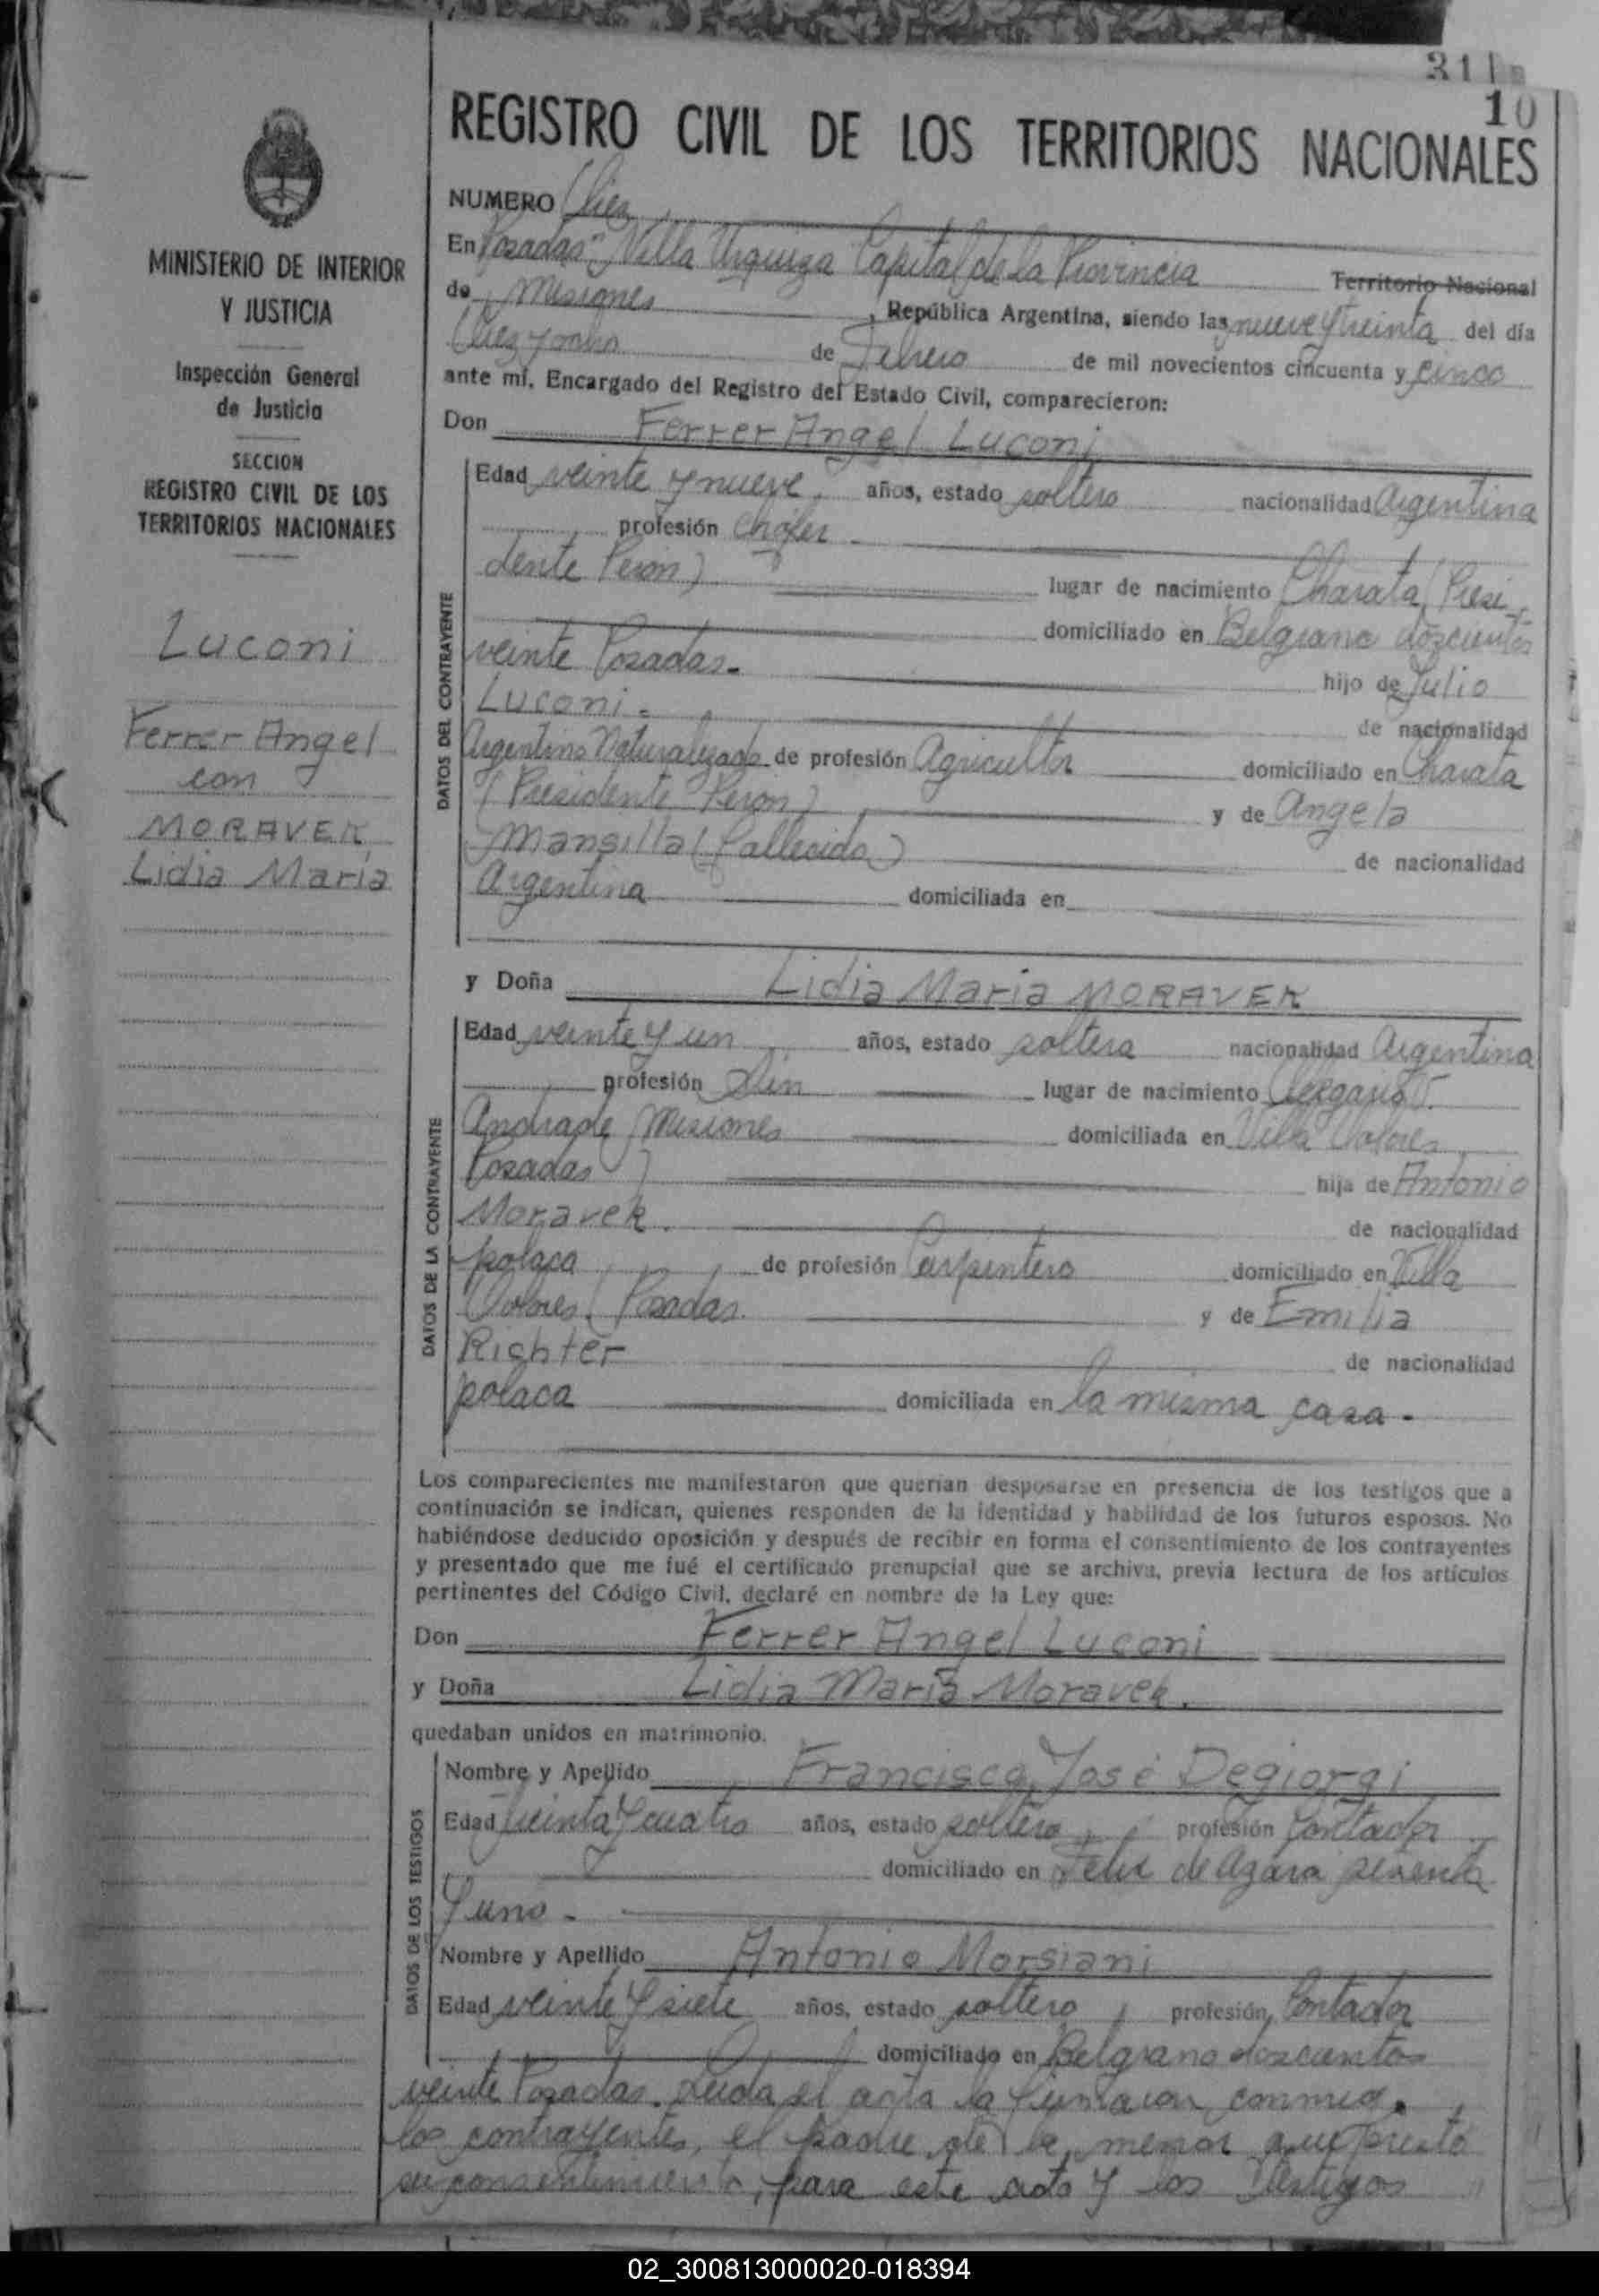 311
10
REGISTRO CIVIL DE LOS TERRITORIOS NACIONALES
MINISTERIO DE INTERIOR
Y JUSTICIA
Inspección General
de Justicia
SECCION
REGISTRO CIVIL DE LOS
TERRITORIOS NACIONALES
Luconi
Ferrer Angel
con
MORAVEK
Lidia María
NUMERO Diez
En Posadas Villa Urquiza Capital de la Provincia Territorio Nacional
de Misiones, República Argentina, siendo las nueve y treinta del día
diez y ocho de Febrero de mil novecientos cincuenta y cinco
ante mí, Encargado del Registro del Estado Civil, comparecieron:
Don Ferrer Angel Luconi
DATOS DEL CONTRAYENTE
Edad veinte y nueve años, estado soltero nacionalidad Argentina
profesión Chófer
dente Perón) lugar de nacimiento Charata (Presi
domiciliado en Belgrano doscientos
veinte Posadas.- hijo de Julio
Luconi.- de nacionalidad
Argentino Naturalizado de profesión Agricultor domiciliado en Charata
(Presidente Perón) y de Angela
Mansilla (fallecida) de nacionalidad
Argentina domiciliada en
y Doña Lidia María MORAVEK
DATOS DE LA CONTRAYENTE
Edad veinte y un años, estado soltera nacionalidad Argentina
profesión Sin lugar de nacimiento Olegario V.
Andrade Misiones domiciliada en Villa Dolores
Posadas hija de Antonio
Moravek. de nacionalidad
polaca de profesión Carpintero domiciliado en Villa
Dolores Posadas. y de Emilia
Richter de nacionalidad
polaca domiciliada en la misma casa.-
Los comparecientes me manifestaron que querían desposarse en presencia de los testigos que a
continuación se indican, quienes responden de la identidad y habilidad de los futuros esposos. No
habiéndose deducido oposición y después de recibir en forma el consentimiento de los contrayentes
y presentado que me fué el certificado prenupcial que se archiva, previa lectura de los artículos
pertinentes del Código Civil, declaré en nombre de la Ley que:
Don Ferrer Angel Luconi
y Doña Lidia María Moravek.
quedaban unidos en matrimonio.
DATOS DE LOS TESTIGOS
Nombre y Apellido Francisco José Degiorgi
Edad treinta y cuatro años, estado soltero profesión Contador
domiciliado en Félix de Azara sesenta
y uno.-
Nombre y Apellido Antonio Morsiani
Edad veinte y siete años, estado soltero, profesión Contador
domiciliado en Belgrano doscientos
veinte Posadas. Leída el acta la firmaron conmigo
los contrayentes, el padre de la menor que prestó
su consentimiento, para este acto y los testigos
02_300813000020-018394